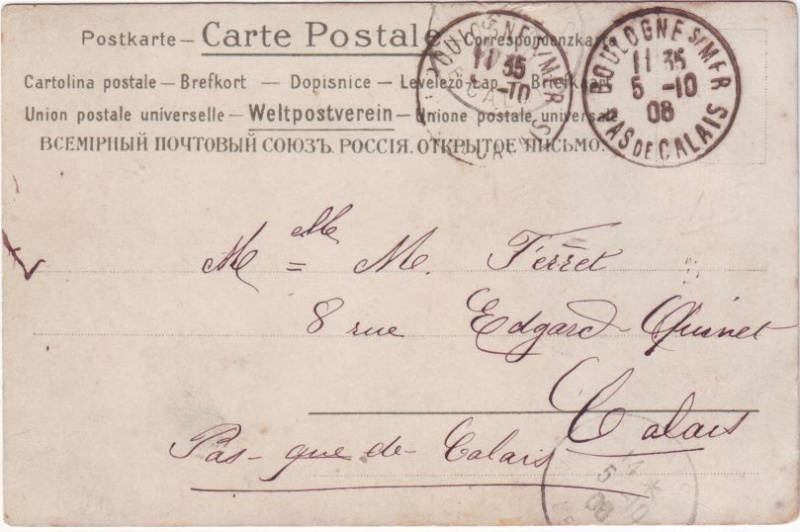 Postkarte — Carte Postale — Correspondenzkarte
Cartolina postale — Brefkort — Dopisnice — Levelezö-Lap — Briefkaart
Union postale universelle — Weltpostverein — Unione postale universale
ВСЕМІРНЫЙ ПОЧТОВЫЙ СОЮЗЪ. РОССІЯ. ОТКРЫТОЕ ПИСЬМО.
BOULOGNE S/MER
11 35
5 -10
PAS DE CALAIS
BOULOGNE S/MER
11 35
5 -10
08
PAS DE CALAIS
Mlle M. Ferret
8 rue Edgard-Quinet
Calais
Pas-que-de-Calais
5
08